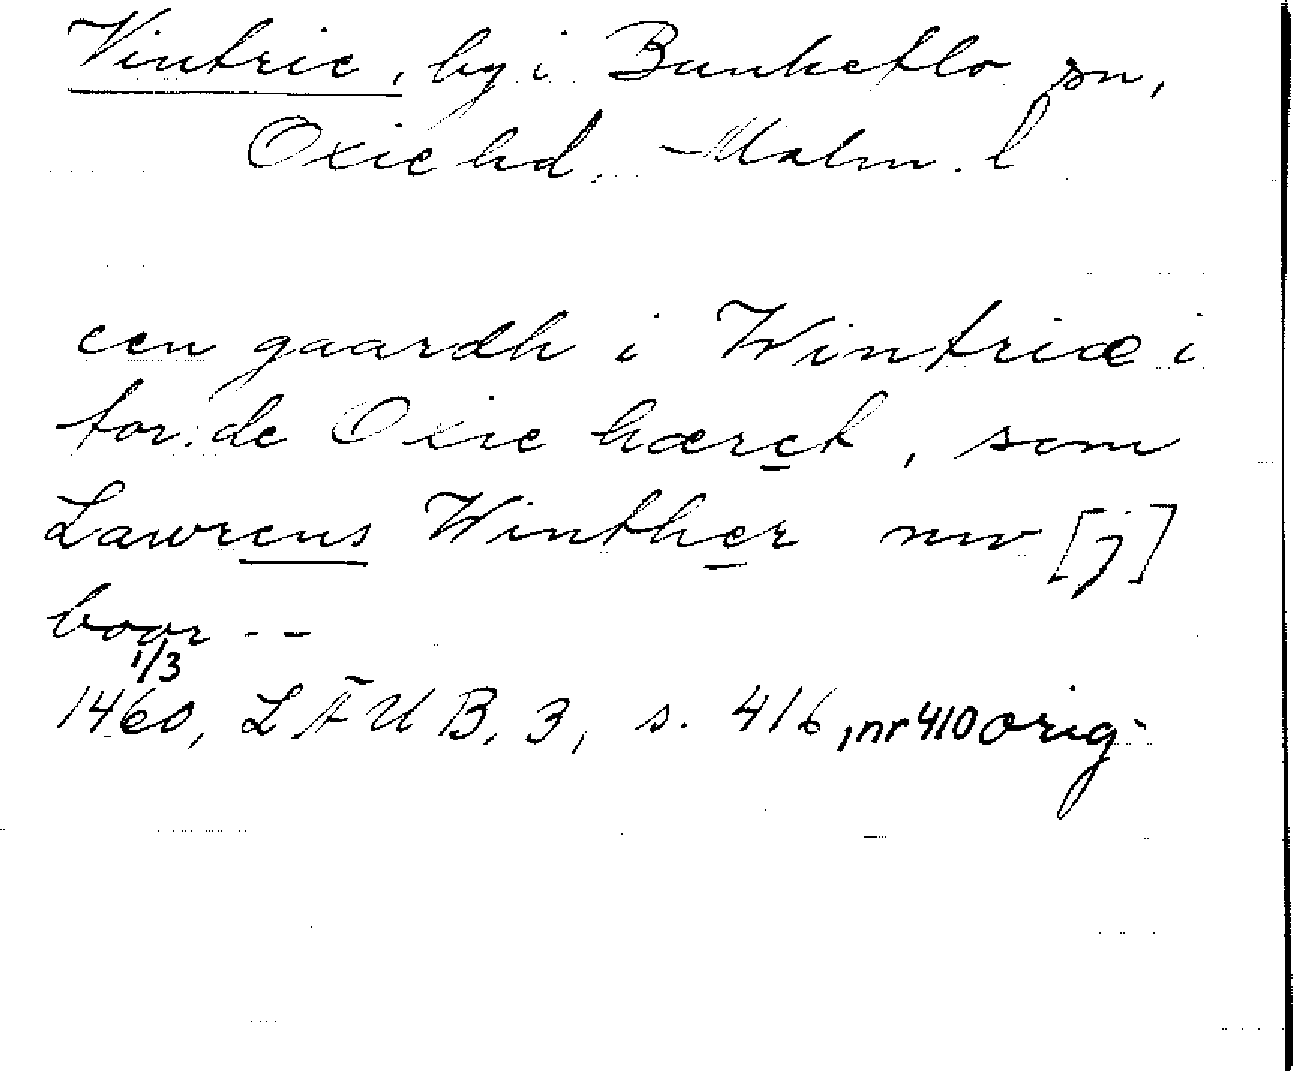 Vintrie, by i Bunkeflo sn,
Oxie hd. Malm. l
een gaardh i Wintriæ i
for:de Oxie hæret, som
Lawrens Winther nw [j]
boor --
1/3
1460, LÄUB. 3, s. 416, nr 410 orig.